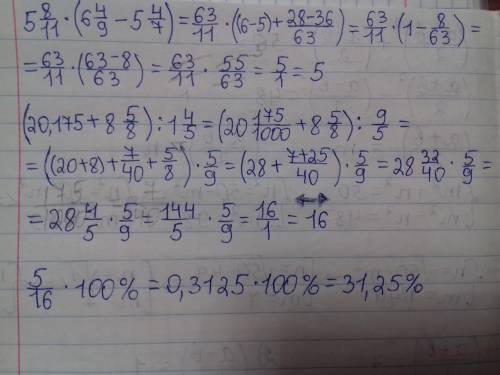 5 8/11 · (6 4/9 − 5 4/7) = 63/11 · (6−5) + 28−36/63) = 63/11 · (1 − 8/63) =
= 63/11 · (63−8/63) = 63/11 · 55/63 = 5/1 = 5
(20,175 + 8 5/8) : 1 4/5 = (20 175/1000 + 8 5/8) : 9/5 =
= ((20+8) + 7/40 + 5/8) · 5/9 = (28 + 7+25/40) · 5/9 = 28 32/40 · 5/9 =
= 28 4/5 · 5/9 = 144/5 · 5/9 = 16/1 = 16
5/16 · 100% = 0,3125 · 100% = 31,25%